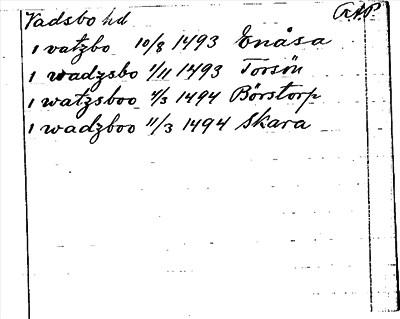 Vadsbo hd
1 vatzbo 10/8 1493 Enåsa
1 wadzsbo 1/11 1493 Torsön
1 watzsboo 4/3 1494 Börstorp
1 wadzboo 11/3 1494 Skara